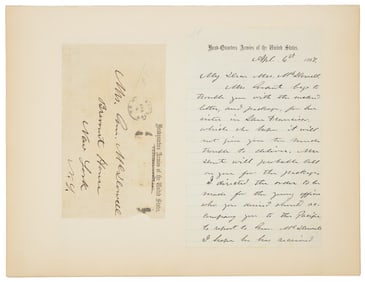 Headquarters Armies of the United States.
Mrs. Gen. McDowell
Brevoort House
New York
N.Y.
Head-Quarters Armies of the United States.
Apl. 6th
My Dear Mrs. McDowell
Mrs. Grant begs to
trouble you with the
letter, and package, for her
sister in San Francisco,
which she hopes it will
not give you too much
trouble to deliver. Mrs.
Grant will probably call
on you for the package.
I directed the order to be
made for the young officer
who you desired should ac-
company you to the Pacific
to report to Gen. McDowell
I hope he has received